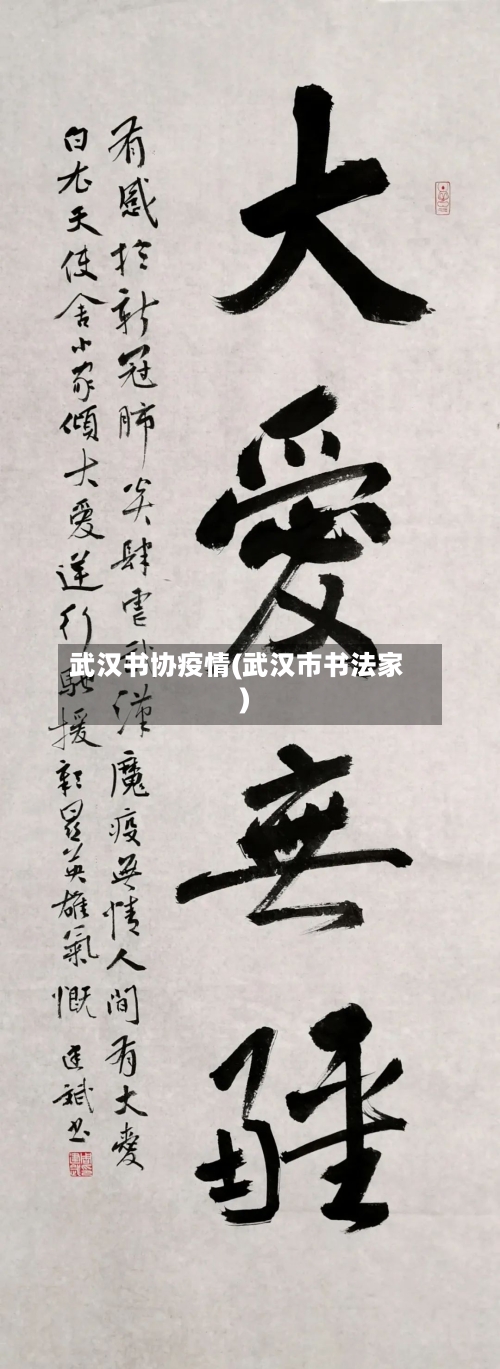 大愛無疆
有感於新冠肺炎肆虐武漢魔疫無情人間有大愛
白衣天使舍小家傾大愛逆行馳援彰显英雄氣慨 斌书
武汉书协疫情(武汉市书法家
)